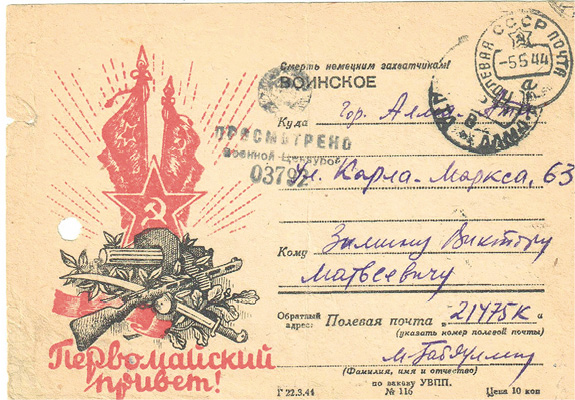 Смерть немецким захватчикам!
ВОИНСКОЕ
ПОЛЕВАЯ ПОЧТА
СССР
-5 5 44
ПРОСМОТРЕНО
Военной Цензурой
03792
Куда гор. Алма-
ул. Карла-Маркса, 63
Кому Зимину Виктору
Матвеевичу
Обратный адрес: Полевая почта № 21475К а
(указать номер полевой почты)
(Фамилия, имя и отчество)
Первомайский
привет!
Г 22.3.44
по заказу УВПП.
№ 116
Цена 10 коп